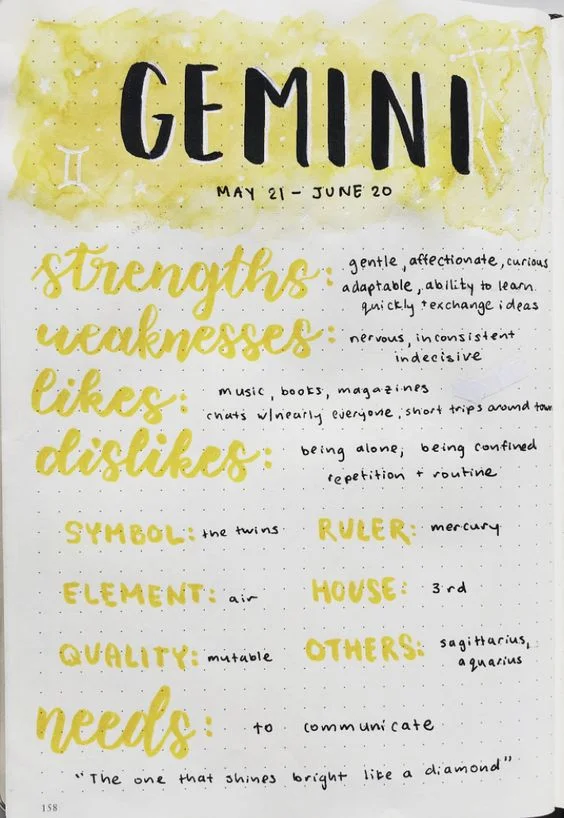 GEMINI
MAY 21 - JUNE 20
strengths: gentle, affectionate, curious
adaptable, ability to learn
quickly + exchange ideas
weaknesses: nervous, inconsistent
indecisive
likes: music, books, magazines
chats w/nearly everyone, short trips around town
dislikes: being alone, being confined
repetition + routine
SYMBOL: the twins RULER: mercury
ELEMENT: air HOUSE: 3rd
QUALITY: mutable OTHERS: sagittarius,
aquarius
needs: to communicate
"The one that shines bright like a diamond"
158